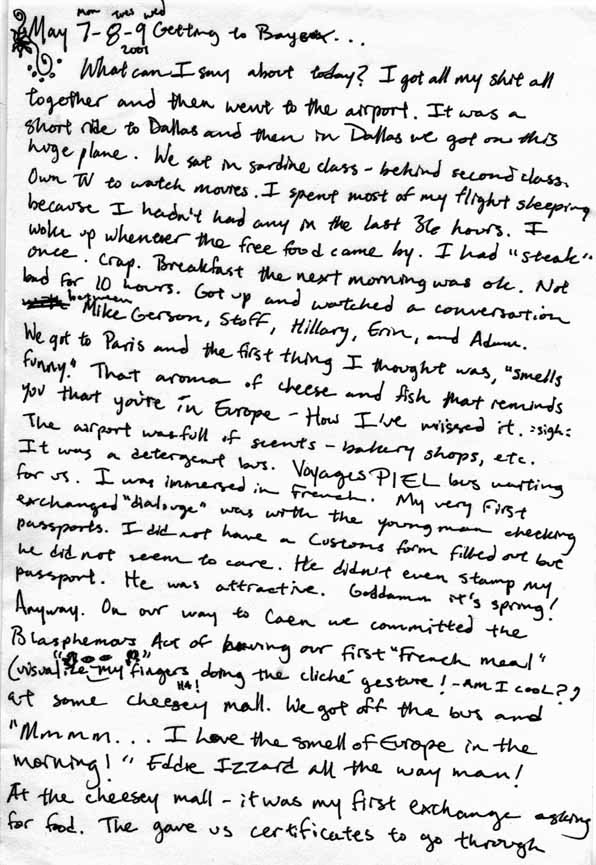 mon tues wed
May 7-8-9 Getting to Bayeux...
2001
What can I say about today? I got all my shit all
together and then went to the airport. It was a
short ride to Dallas and then in Dallas we got on this
huge plane. We sat in sardine class - behind second class.
Own TV to watch movies. I spent most of my flight sleeping
because I hadn't had any in the last 36 hours. I
woke up whenever the free food came by. I had "steak"
once. Crap. Breakfast the next morning was ok. Not
bad for 10 hours. Got up and watched a conversation
between Mike Gerson, Stoff, Hillary, Erin, and Adam.
We got to Paris and the first thing I thought was, "smells
funny." That aroma of cheese and fish that reminds
you that you're in Europe - How I've missed it. :sigh:
The airport was full of scents - bakery shops, etc.
It was a detergent bus. Voyages PIEL bus waiting
for us. I was immersed in French. My very first
exchanged "dialouge" was with the young man checking
passports. I did not have a Customs form filled out but
he did not seem to care. He didn't even stamp my
passport. He was attractive. Goddamn it's spring!
Anyway. On our way to Caen we committed the
Blasphemous Act of having our first "French meal"
(visualize my fingers doing the cliché gesture! - am I cool??)
at some cheesey mall. We got off the bus and
HA!
"Mmmm... I love the smell of Europe in the
morning!" Eddie Izzard all the way man!
At the cheesey mall - it was my first exchange asking
for food. The gave us certificates to go through